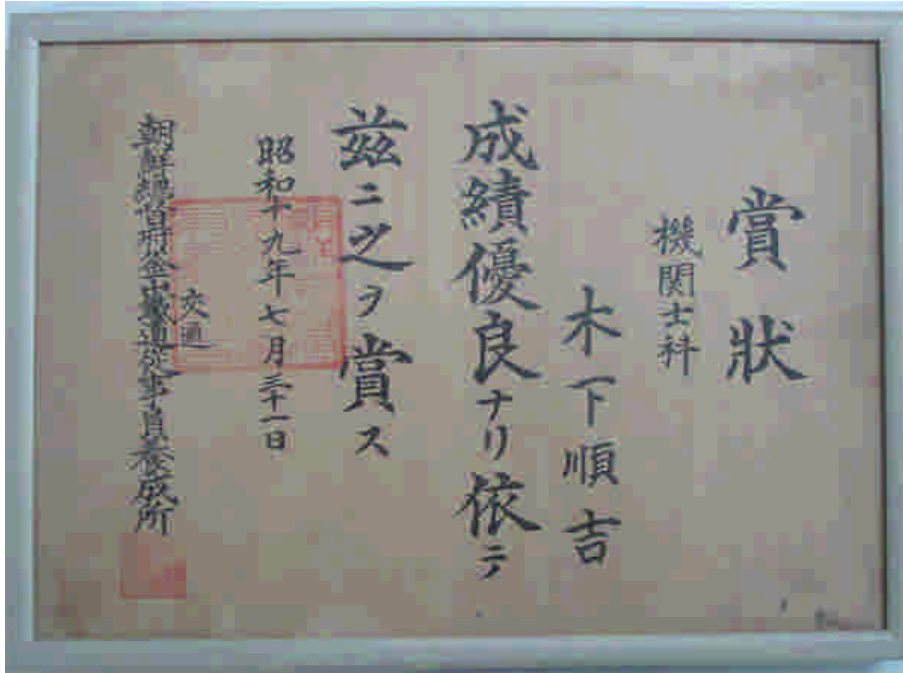 賞狀
機関士科
木下順吉
成績優良ナリ依テ
茲ニ之ヲ賞ス
昭和十九年七月三十一日
交通
朝鮮総督府釜山鐵道従事員養成所